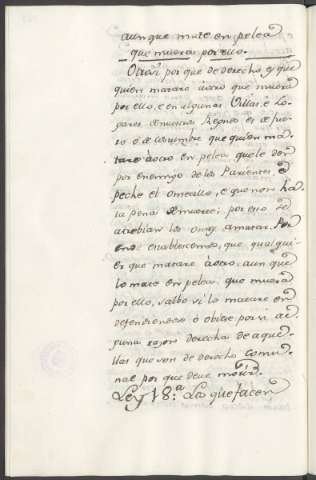 aunque mate en pelea
que muera por ello.
Otrosi por que de derecho es que
quien matare áotro que muera
por ello, e en algunas Villas, é Lo-
gares de nuestros Regnos es de fue-
ro ó de costumbre que quien ma-
tare àotro en pelea que le den
por enemigo de los Parientes è
peche el omecillo, e que non ha-
ia pena de muerte; por eso se
atreblan los omes amatar. Por
end establecemos, que qualqui-
er que matare àotro, aunque
lo mate en pelea, que muera
por ello, salbo si lo matare en
defendiendo o obiere por si al-
guna razon derecha de aque-
llas que son de derecho comu-
nal por que deve morir.
Ley 18.ª Los que facen